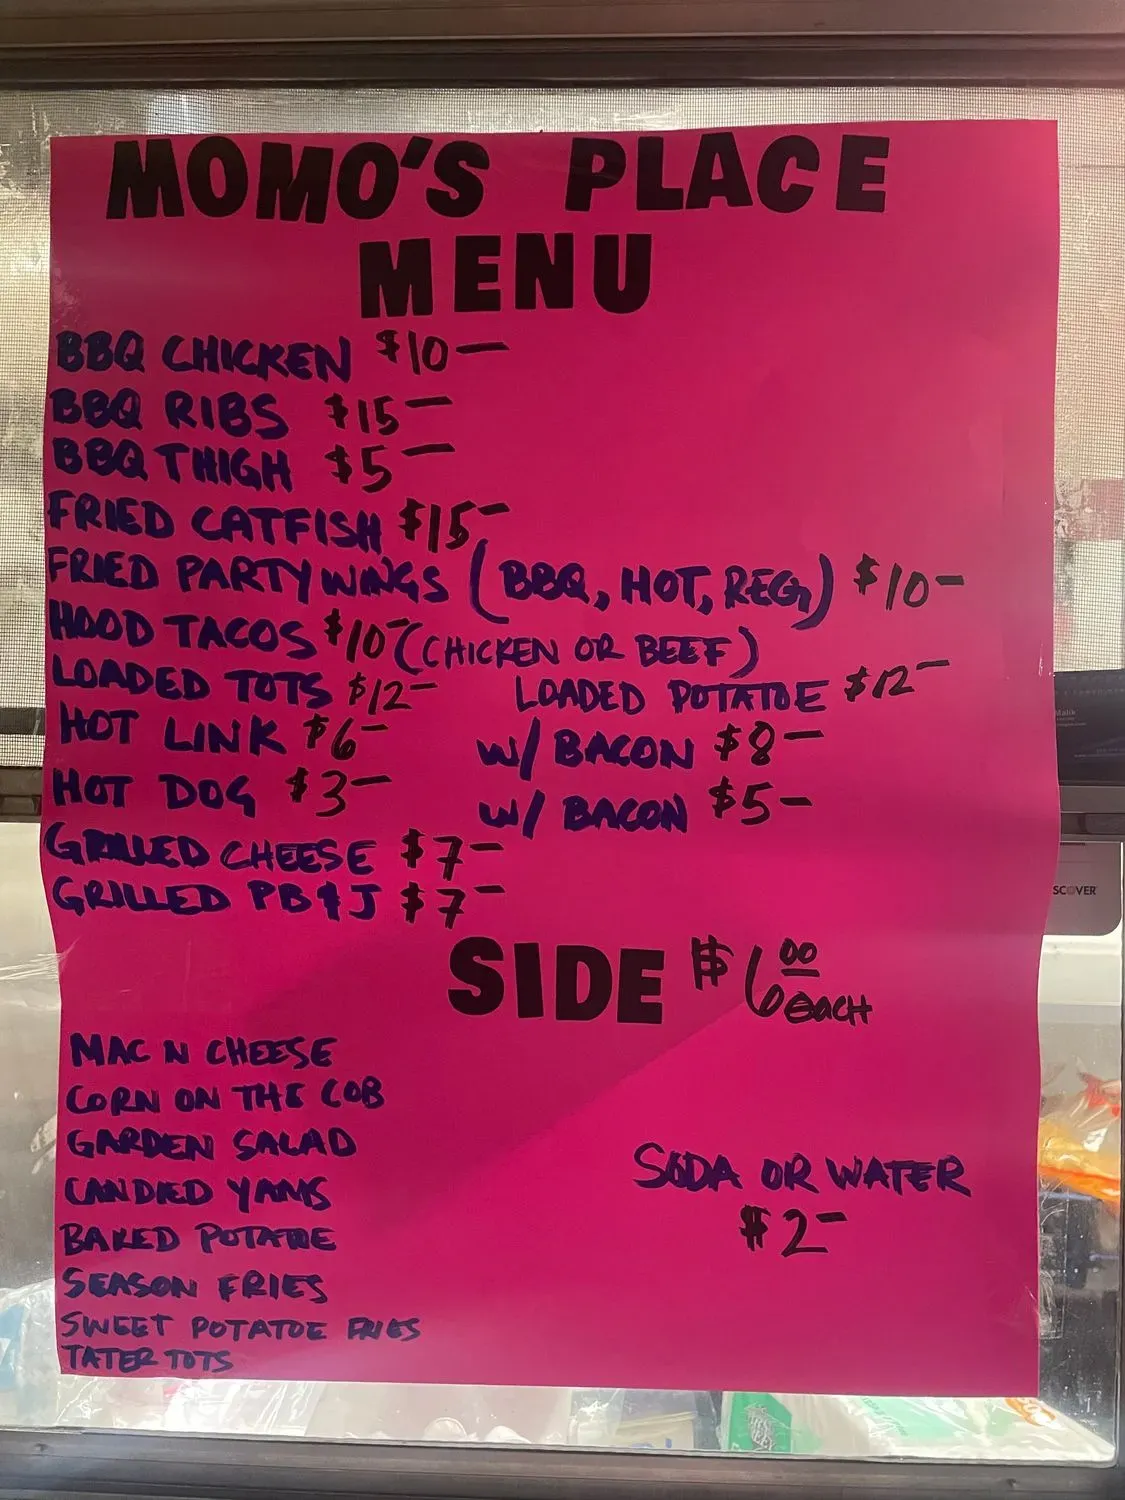 MOMO'S PLACE
MENU
BBQ CHICKEN $10—
BBQ RIBS $15—
BBQ THIGH $5—
FRIED CATFISH $15—
FRIED PARTY WINGS (BBQ, HOT, REG) $10—
HOOD TACOS $10— (CHICKEN OR BEEF)
LOADED TOTS $12— LOADED POTATOE $12—
HOT LINK $6— W/ BACON $8—
HOT DOG $3— W/ BACON $5—
GRILLED CHEESE $7—
GRILLED PB&J $7—
SIDE $6.00 EACH
MAC N CHEESE
CORN ON THE COB
GARDEN SALAD
CANDIED YAMS
BAKED POTATOE
SEASON FRIES
SWEET POTATOE FRIES
TATER TOTS
SODA OR WATER
$2—
Malik
DISCOVER